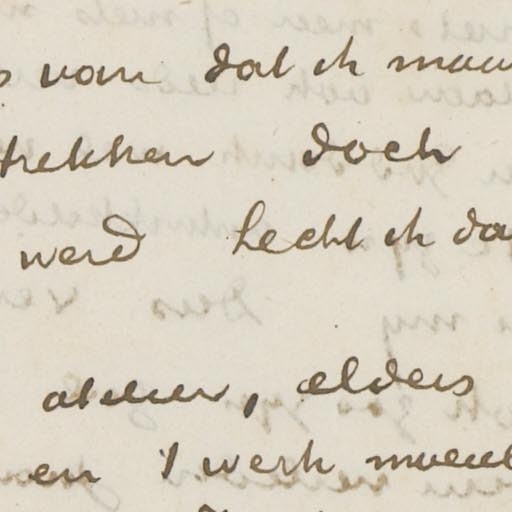 van dat ik maar
trekken doch
werd hecht ik da
atelier, elders
en 't werk moeil